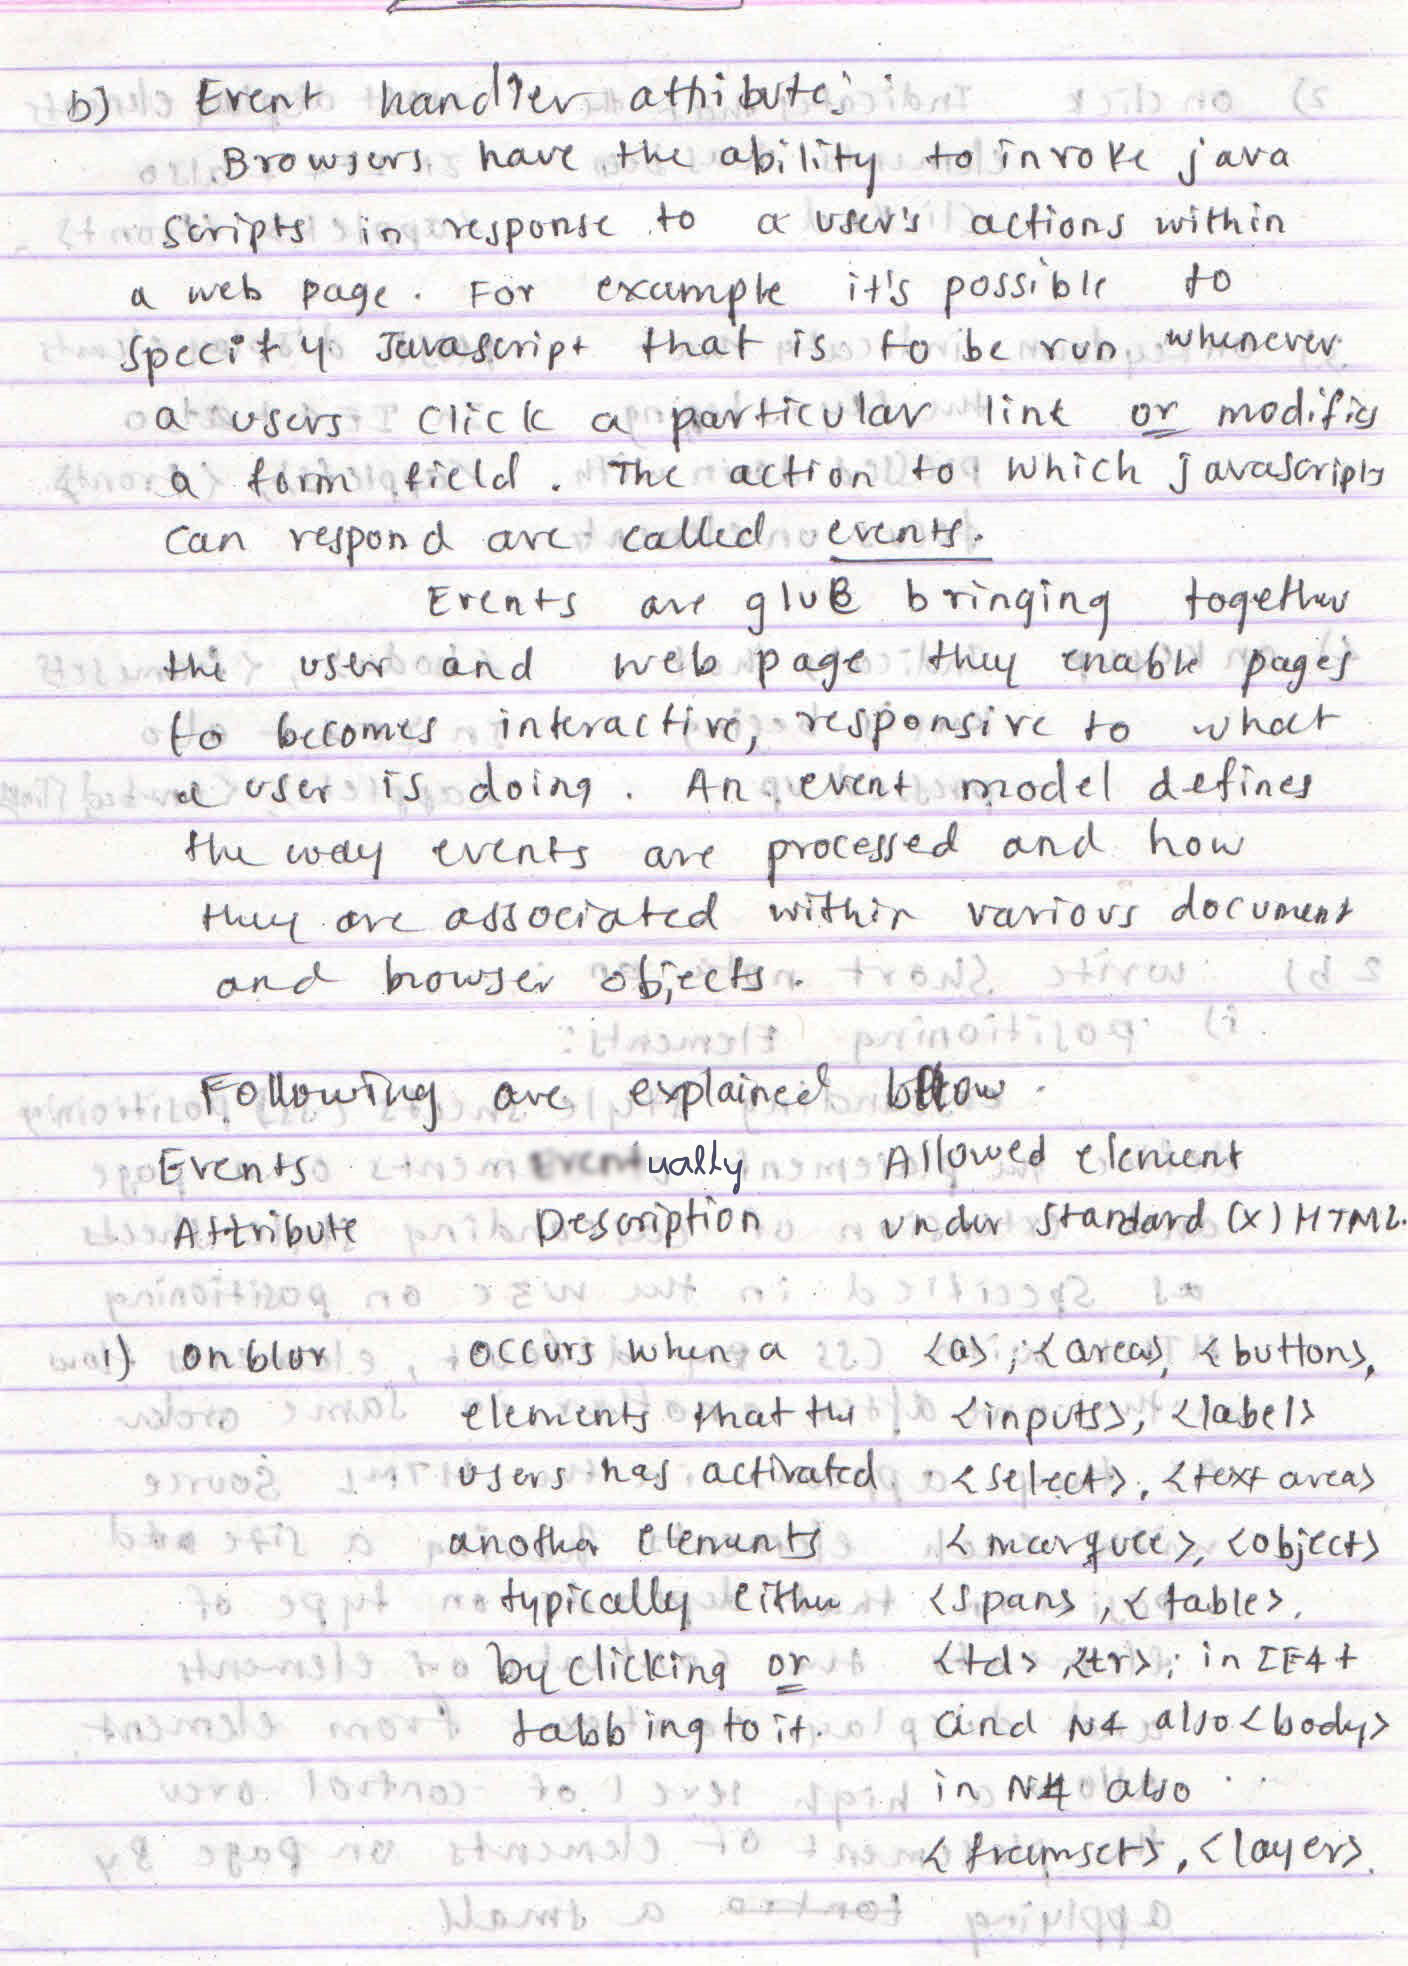 b) Event handler attribute:
Browsers have the ability to invoke java
scripts in response to a user's actions within
a web page. For example it's possible to
specify Javascript that is to be run whenever
a users click a particular link or modifies
a form field. The action to which javascripts
can respond are called events.
Events are glue bringing together
the user and web page they enable pages
to becomes interactive, responsive to what
a user is doing. An event model defines
the way events are processed and how
they are associated within various document
and browser objects.
Following are explained below.
Events Eventually Allowed element
Attribute Description under standard (X) HTML.
1) onblur occurs when a <a>, <area>, <button>,
elements that the <inputs>, <label>
users has activated <select>, <text area>
another elements <marquee>, <object>
typically either <span>, <table>,
by clicking or <td> <tr>; in IE4+
tabbing to it. and N4 also <body>
in N4 also
<framset>, <layer>.